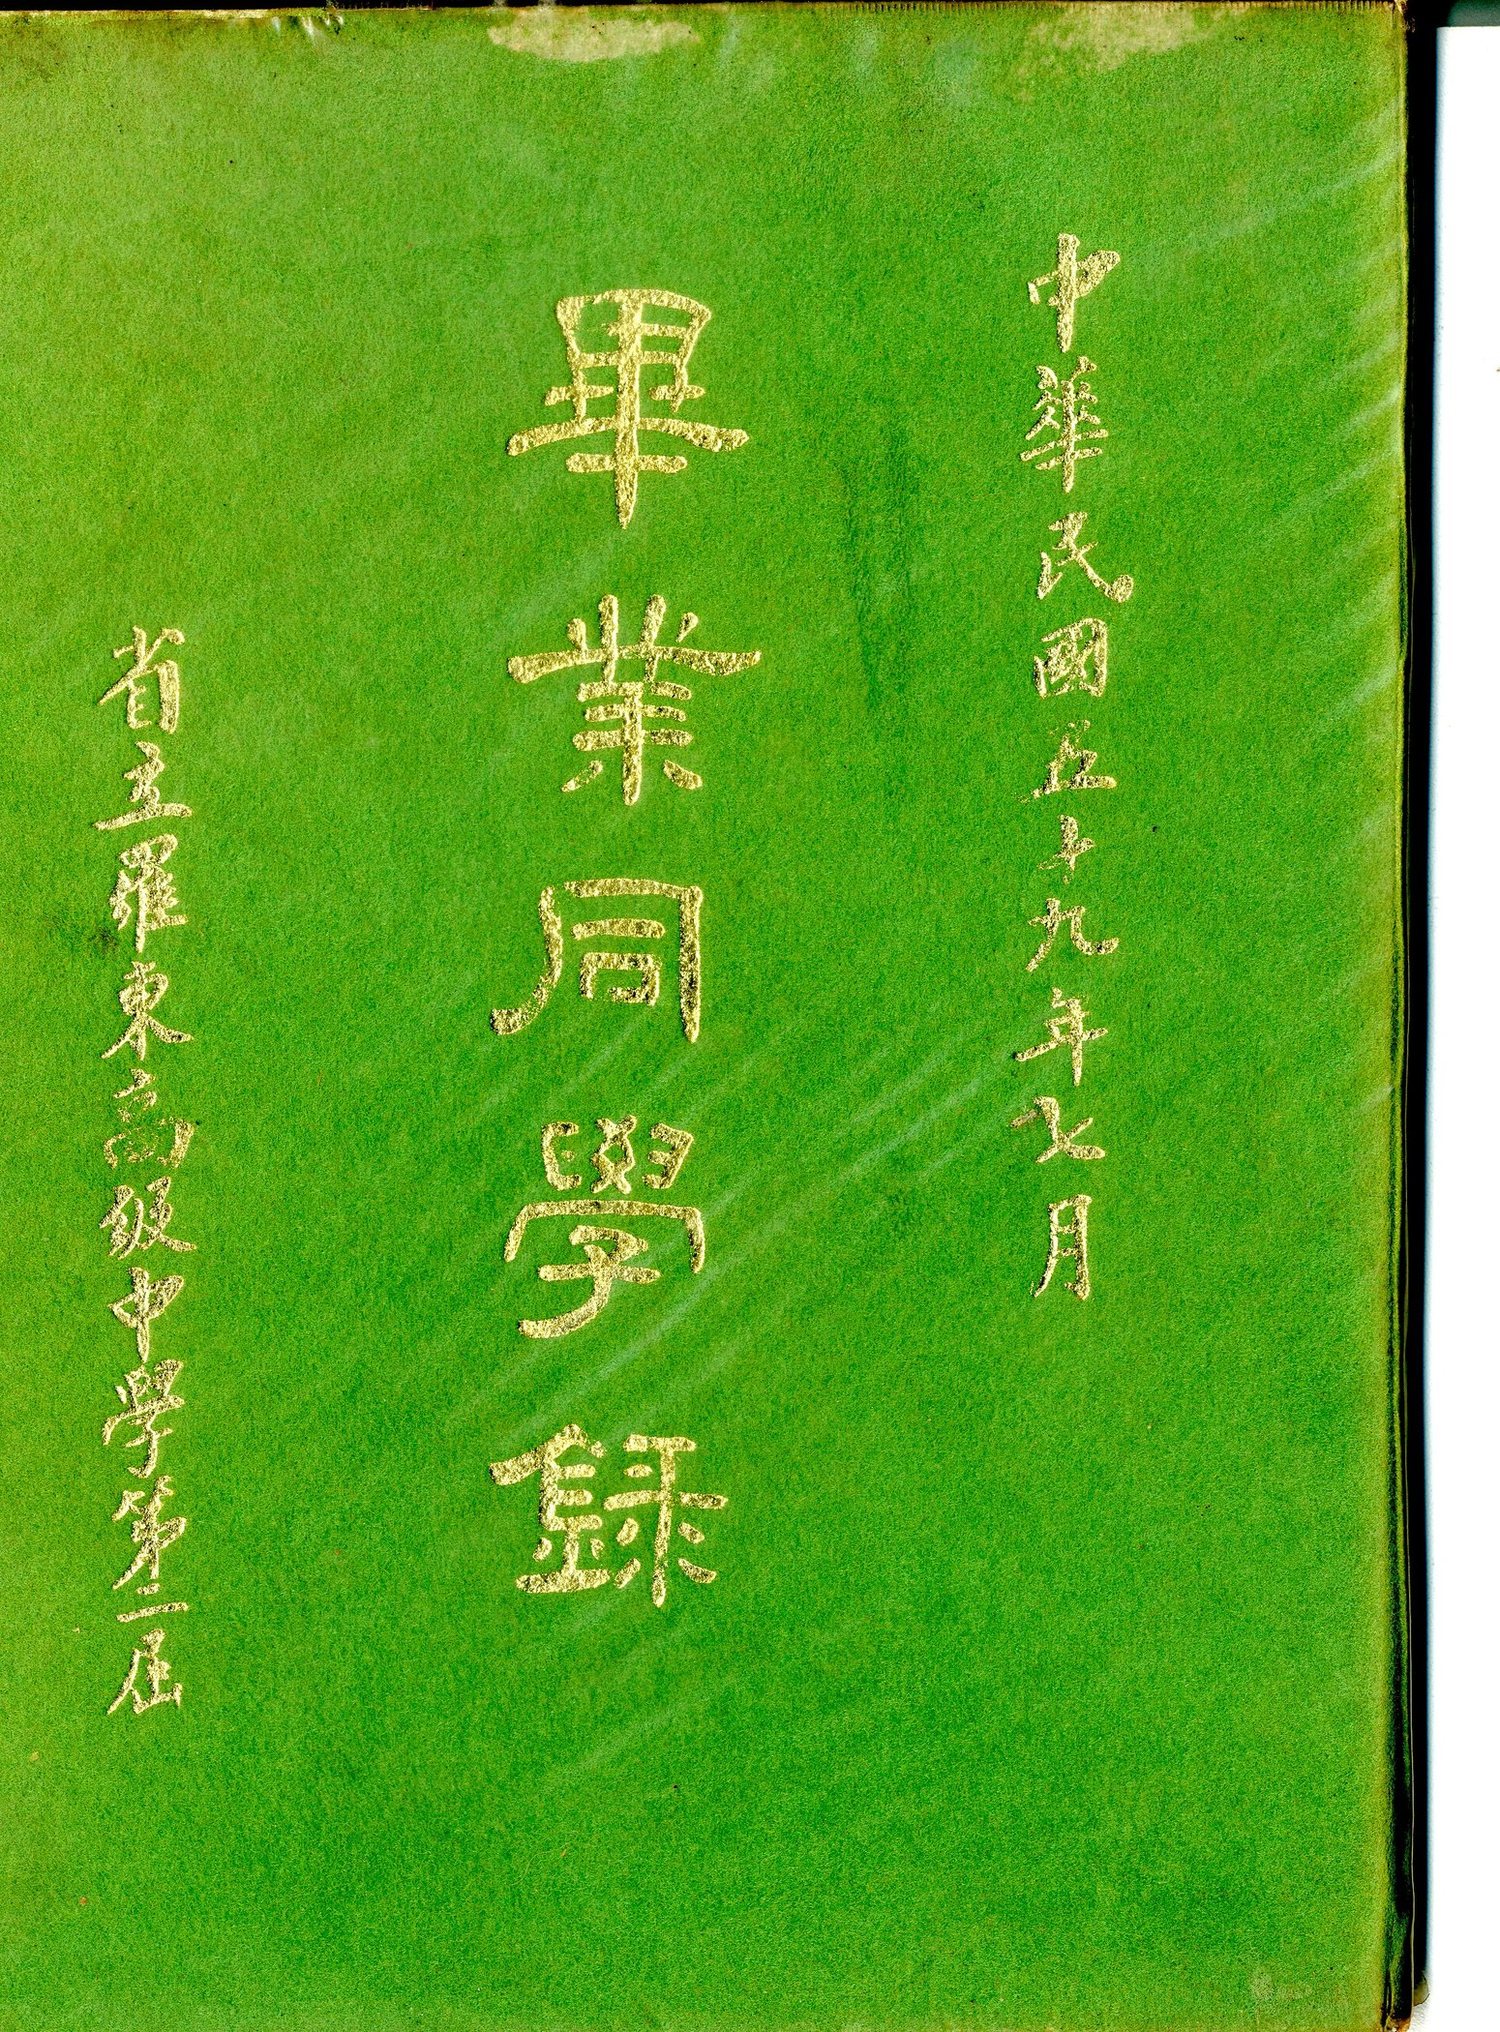 中華民國五十九年七月
畢業同學錄
省立羅東高級中學第二屆